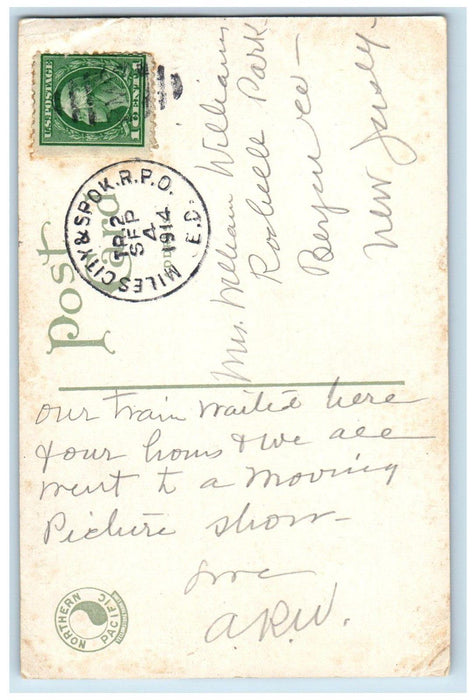 U.S. POSTAGE
1 CENT 1
MILES CITY & SPOK. R.P.O.
TR. 2
SEP
4
1914
E.D.
Post Card
Mrs. William Williams
Rochelle Park
Bergen Co —
New Jersey
our train waited here
4 our hours & we all
went to a Moving
Picture show —
A.R.W.
NORTHERN PACIFIC